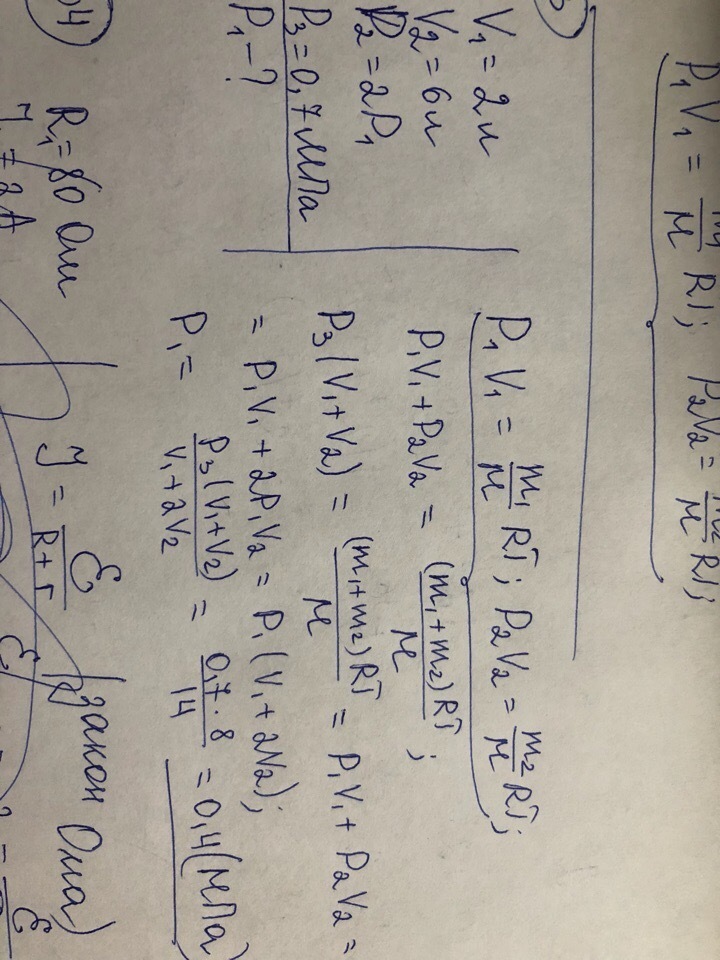 P₁V₁ = m₁/M RT; P₂V₂ = m₂/M RT;
V₁ = 2л
V₂ = 6л
P₂ = 2P₁
P₃ = 0,7 МПа
P₁ – ?
P₁V₁ = m₁/M RT; P₂V₂ = m₂/M RT;
P₁V₁ + P₂V₂ = (m₁+m₂)RT/M;
P₃(V₁+V₂) = (m₁+m₂)RT/M = P₁V₁ + P₂V₂ =
= P₁V₁ + 2P₁V₂ = P₁(V₁ + 2V₂);
P₁ = P₃(V₁+V₂)/V₁+2V₂ = 0,7·8/14 = 0,4(МПа)
4
R₁ = 80 Ом
J = ℰ/R+r
закон Ома)
= 2А
ℰ